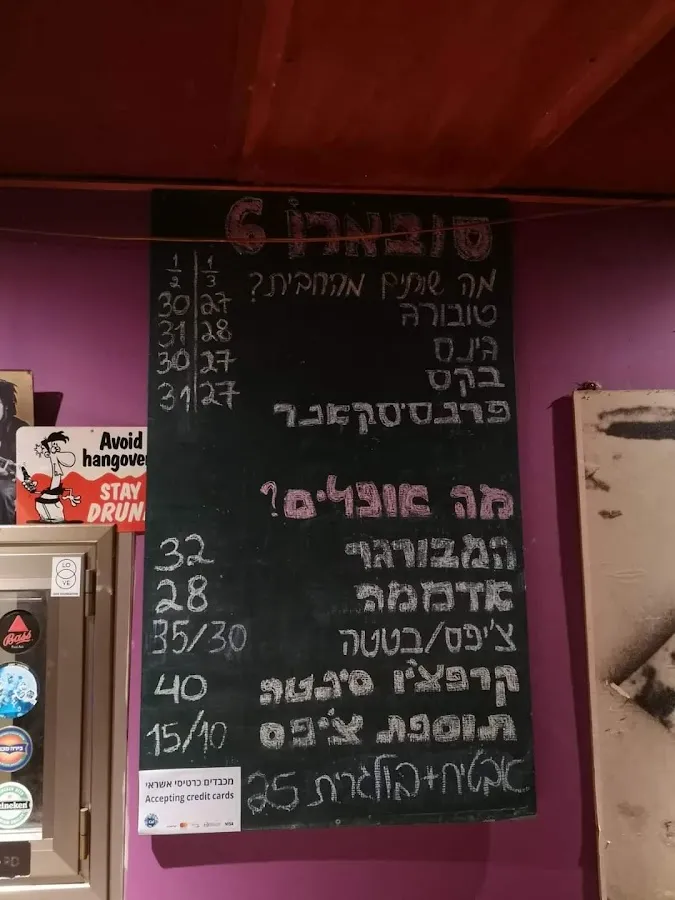 סובארו 6
מה שותים מהחבית? 1/3 1/2
טובורג 27 30
גינס 28 31
בקס 27 30
פרנסיסקאנר 27 31
מה אוכלים?
המבורגר 32
אדממה 28
צ'יפס/בטטה 35/30
קרפצ'יו סינטה 40
תוספת צ'יפס 15/10
אבטיח+בולגרית 25
מכבדים כרטיסי אשראי
Accepting credit cards
VISA
Avoid
hangover
STAY
DRUN
LO
VE
Bass
Heineken